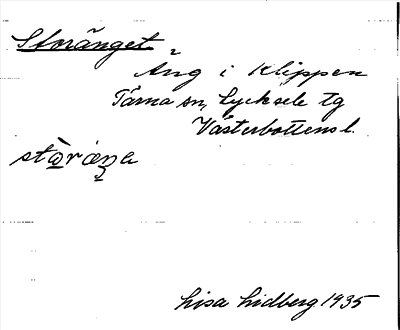 Storänget
Äng i Klippen
Tärna sn, Lycksele tg
Västerbottens l.
Lisa Lidberg 1935